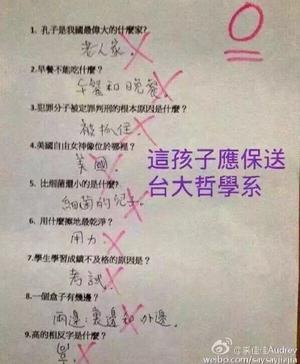 0
1. 孔子是我國最偉大的什麼家?
老人家.
2.早餐不能吃什麼?
午餐和晚餐.
3.犯罪分子被定罪判刑的根本原因是什麼?
被抓住
4.美國自由女神像位於哪裡?
美國.
這孩子應保送
台大哲學系
5. 比細菌還小的是什麼?
細菌的兒子.
6. 用什麼擦地最乾淨?
用力.
7.學生學習成績不及格的原因是?
考試.
8.一個盒子有幾邊?
兩邊:裏邊和外邊.
9.高的相反字是什麼?
@來佳佳Audrey
weibo.com/saysayjiajia